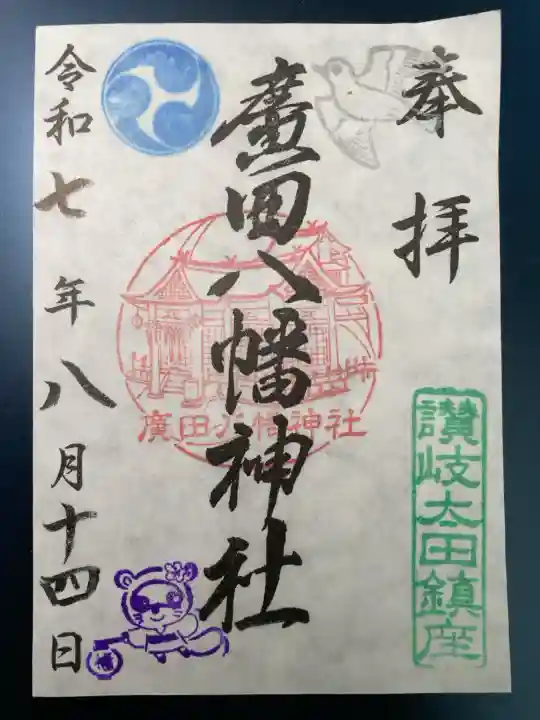 奉拝
讃岐太田鎮座
廣田八幡神社
廣田八幡神社
令和七年八月十四日